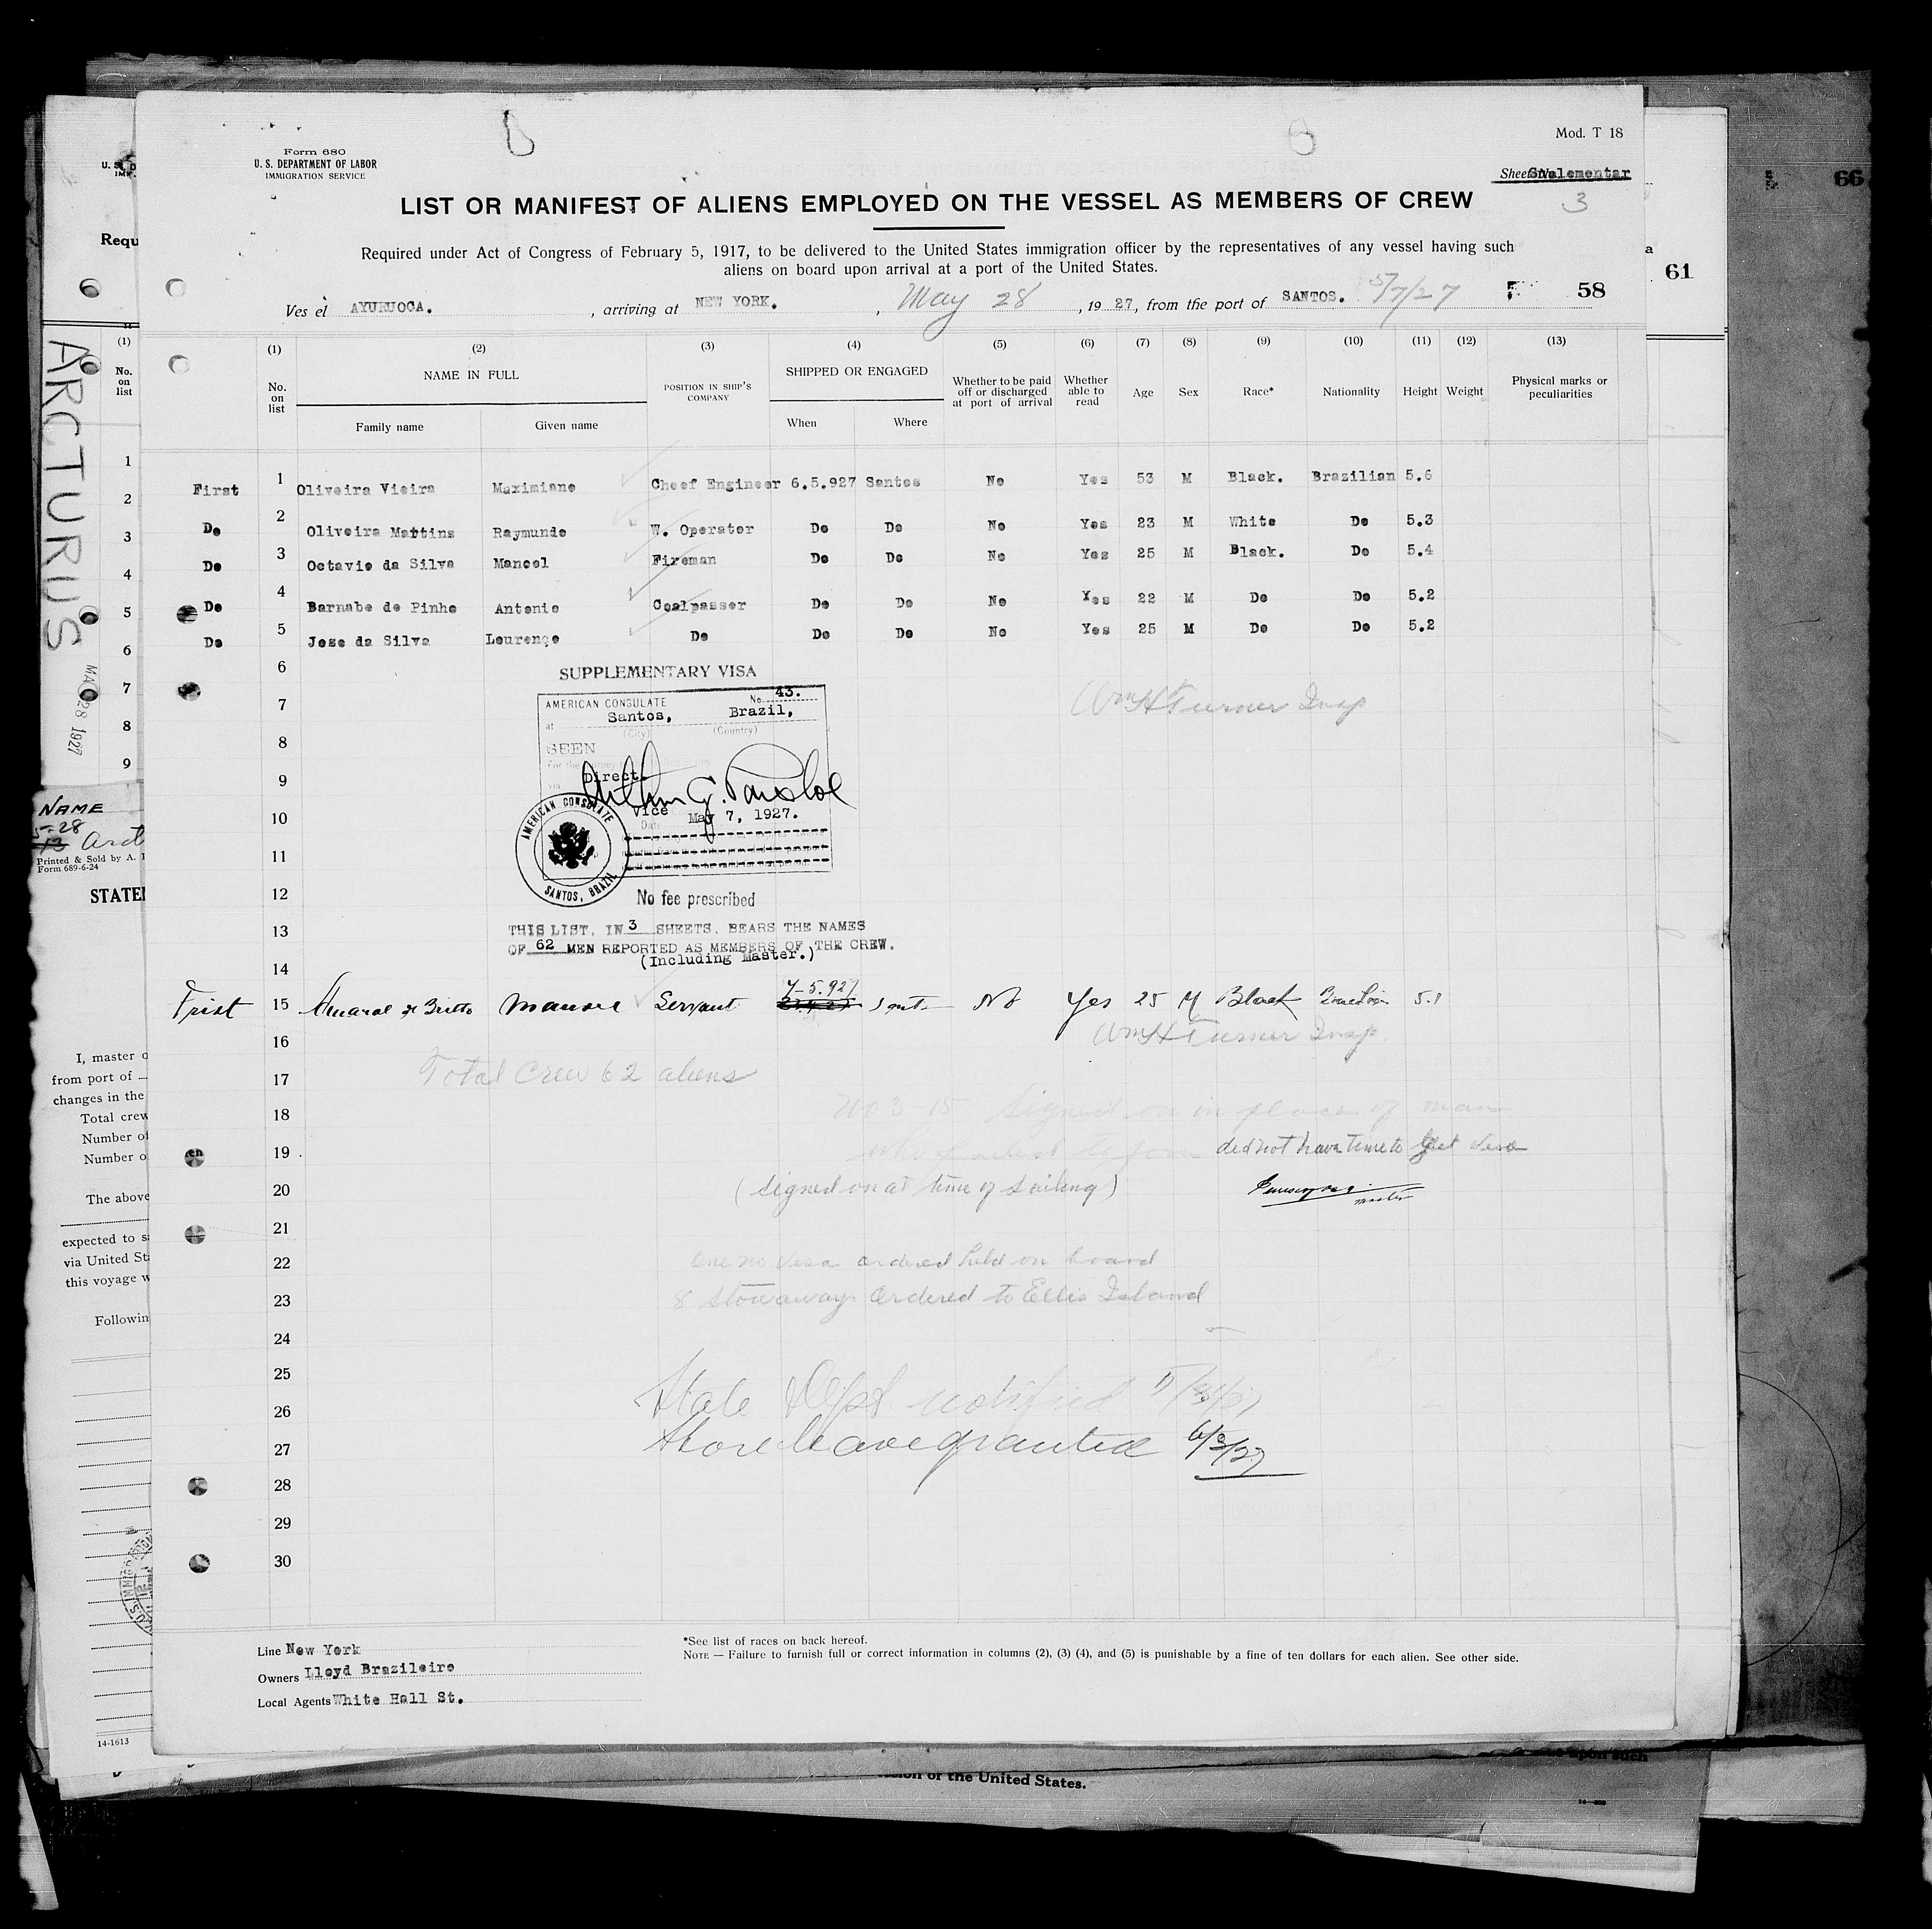 Form 680
U. S. DEPARTMENT OF LABOR
IMMIGRATION SERVICE
Mod. T 18
3
LIST OR MANIFEST OF ALIENS EMPLOYED ON THE VESSEL AS MEMBERS OF CREW
Required under Act of Congress of February 5, 1917, to be delivered to the United States immigration officer by the representatives of any vessel having such
aliens on board upon arrival at a port of the United States.
Ves el AYURUOCA. , arriving at NEW YORK. , May 28 , 19 27, from the port of SANTOS. 5/7/27 58
(1) (2) (3) (4) (5) (6) (7) (8) (9) (10) (11) (12) (13)
No. on list
NAME IN FULL
Family name Given name
POSITION IN SHIP'S COMPANY
SHIPPED OR ENGAGED
When Where
Whether to be paid off or discharged at port of arrival
Whether able to read
Age Sex Race* Nationality Height Weight
Physical marks or peculiarities
First 1 Oliveira Vieira Maximiano Cheef Engineer 6.5.927 Santos No Yes 53 M Black. Brazilian 5.6
Do 2 Oliveira Martins Raymundo W. Operator Do Do No Yes 23 M White Do 5.3
Do 3 Octavio da Silva Manoel Fireman Do Do No Yes 25 M Black. Do 5.4
Do 4 Barnabe de Pinho Antonio Coalpasser Do Do No Yes 22 M Do Do 5.2
Do 5 Jose da Silva Lourenço Do Do Do No Yes 25 M Do Do 5.2
6
SUPPLEMENTARY VISA
7
AMERICAN CONSULATE No. 43.
at Santos, Brazil,
(City) (Country)
Wm H Turner Insp
8
SEEN
9
Direct.
10
Vice
Date May 7, 1927.
AMERICAN CONSULATE
SANTOS, BRAZIL
11
12
No fee prescribed
13
THIS LIST, IN 3 SHEETS, BEARS THE NAMES
OF 62 MEN REPORTED AS MEMBERS OF THE CREW.
(Including Master.)
14
7-5.927
15 Servant No Yes 25 M Black 5.1
16
Wm H Turner Insp
17 Total Crew 62 aliens
18 No 3-15 Signed on in place of man
19 who failed did not have time to get visa
20 (Signed on at time of sailing) master
21
22 One no visa ordered held on board
23 8 stowaways ordered to Ellis Island
24
25
State Dept notified
26
27 Shore leave granted
28
29
30
Line New York
Owners Lloyd Brazileiro
Local Agents White Hall St.
*See list of races on back hereof.
NOTE — Failure to furnish full or correct information in columns (2), (3) (4), and (5) is punishable by a fine of ten dollars for each alien. See other side.
ARCTURUS
MA 28 1927
Requ
(1)
No. on list
1
2
3
4
5
6
7
8
9
NAME
5-28
Printed & Sold by A.
Form 689-6-24
STATE
I, master o
from port of
changes in the
Total crew
Number of
Number o
The above
expected to s
via United St
this voyage w
Followin
14-1613
61
66
of the United States.
upon such